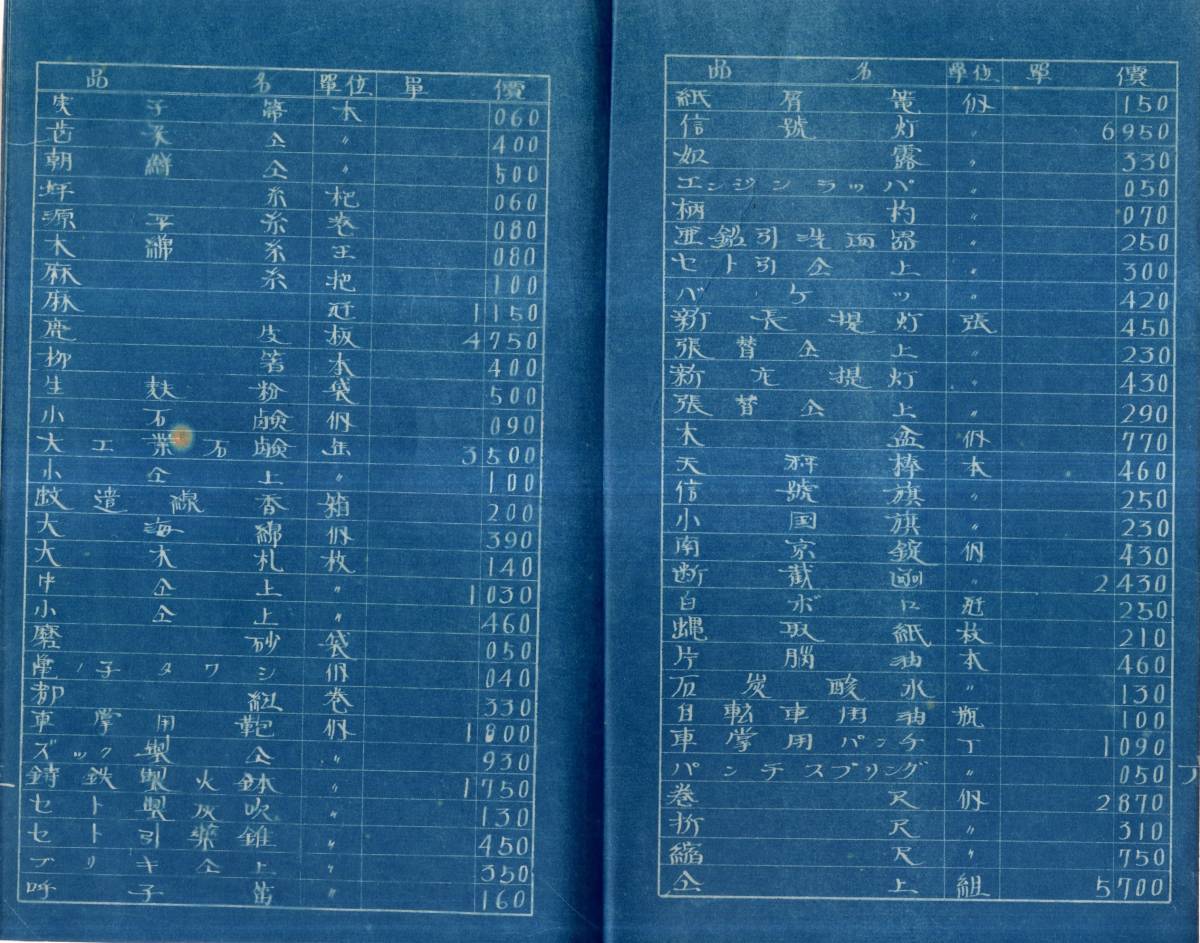 品名 單位 單價
子箒 本 060
歯 仝 〃 400
朝 仝 〃 500
糸 把 060
源平糸 巻 080
木綿糸 玉 080
麻糸 把 100
麻 1150
鹿皮 板 4750
柳箸 本 400
生麩粉 袋 500
小石鹸 個 090
大工業石鹸 缶 3500
小仝上 〃 100
蚊遣線香 箱 200
大海綿 個 390
大木札 枚 140
中仝上 〃 1030
小仝上 〃 460
磨砂 袋 050
亀ノ子タワシ 個 040
紐 巻 330
車掌用鞄 個 1800
ズック製仝 〃 930
鋳鉄製火鉢 〃 1750
セト製灰吹 〃 130
セト引藥錐 〃 450
ブリキ仝上 〃 350
呼子笛 〃 160
品名 單位 單價
紙屑篭 個 150
信號灯 〃 6950
如露 〃 330
エンジンラッパ 〃 050
柄杓 〃 070
亜鉛引洗面器 〃 250
セト引仝上 〃 300
バケツ 〃 420
新長提灯 張 450
張替仝上 〃 230
新丸提灯 〃 430
張替仝上 〃 290
木盆 個 770
天秤棒 本 460
信號旗 〃 250
小国旗 〃 230
南京錠 個 430
断截 〃 2430
白ボロ 250
蝿取紙 枚 210
片脳油 本 460
石炭酸水 〃 130
自転車用油 瓶 100
車掌用パンチ 丁 1090
パンチスプリング 〃 050
巻尺 個 2870
折尺 〃 310
縮尺 〃 750
仝上 組 5700